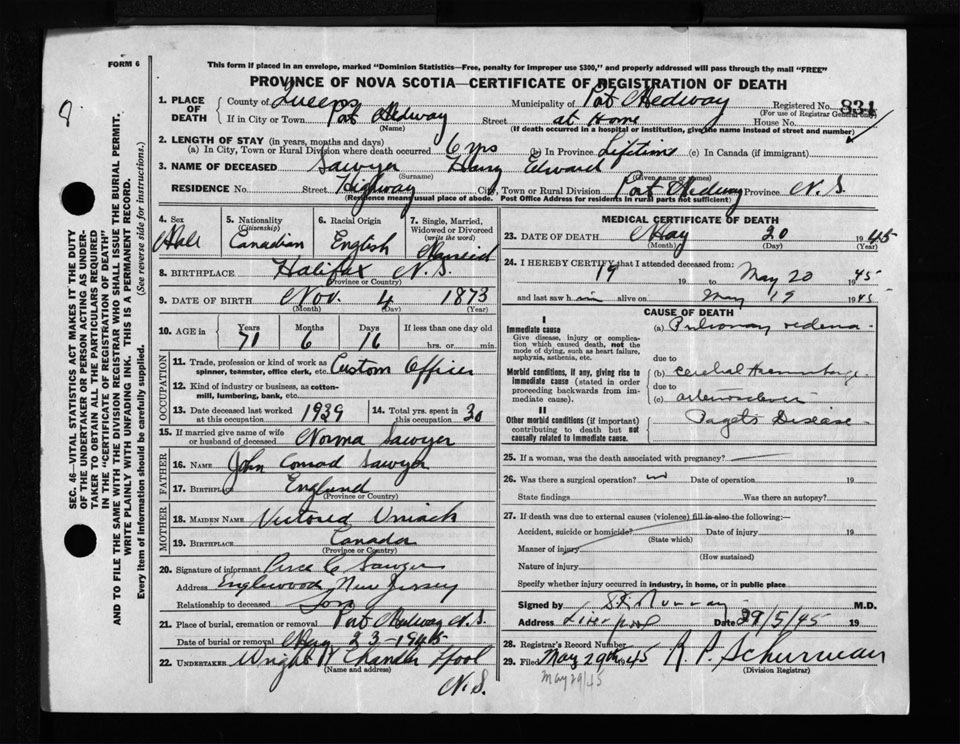 FORM 6
This form if placed in an envelope, marked "Dominion Statistics—Free, penalty for improper use $300," and properly addressed will pass through the mail "FREE"
PROVINCE OF NOVA SCOTIA—CERTIFICATE OF REGISTRATION OF DEATH
8
1. PLACE OF DEATH County of Queens Municipality of Port Medway Registered No. 831
(For use of Registrar General only)
If in City or Town Port Medway Street at Home House No.
(Name) (If death occurred in a hospital or institution, give the name instead of street and number)
2. LENGTH OF STAY (in years, months and days)
(a) In City, Town or Rural Division where death occurred 6 yrs (b) In Province Lifetime (c) In Canada (if immigrant)
3. NAME OF DECEASED Sawyer Henry Edward
(Surname) (Given name or names)
RESIDENCE No. Street Highway City, Town or Rural Division Port Medway Province N.S.
(Residence means usual place of abode. Post Office Address for residents in rural parts not sufficient)
4. Sex Male
5. Nationality (Citizenship) Canadian
6. Racial Origin English
7. Single, Married, Widowed or Divorced (write the word) Married
8. BIRTHPLACE Halifax N.S.
(Province or Country)
9. DATE OF BIRTH Nov. 4 1873
(Month) (Day) (Year)
10. AGE in Years Months Days If less than one day old
71 6 16 hrs. or min.
OCCUPATION
11. Trade, profession or kind of work as spinner, teamster, office clerk, etc. Custom Officer
12. Kind of industry or business, as cotton-mill, lumbering, bank, etc.
13. Date deceased last worked at this occupation 1939
14. Total yrs. spent in this occupation 30
15. If married give name of wife or husband of deceased Norma Sawyer
FATHER
16. NAME John Conrad Sawyer
17. BIRTHPLACE England
(Province or Country)
MOTHER
18. MAIDEN NAME Uniack
19. BIRTHPLACE Canada
(Province or Country)
20. Signature of informant C Sawyer
Address Englewood New Jersey
Relationship to deceased Son
21. Place of burial, cremation or removal Port Medway N.S.
Date of burial or removal May 23-1945
22. UNDERTAKER Wright Chandler L'pool
(Name and address)
N.S.
MEDICAL CERTIFICATE OF DEATH
23. DATE OF DEATH May 20 1945
(Month) (Day) (Year)
24. I HEREBY CERTIFY that I attended deceased from:
19 19 to May 20 1945
and last saw him alive on May 19 1945
CAUSE OF DEATH
I
Immediate cause
Give disease, injury or complication which caused death, not the mode of dying, such as heart failure, asphyxia, asthenia, etc.
(a) Pulmonary edema
due to
Morbid conditions, if any, giving rise to immediate cause (stated in order proceeding backwards from immediate).
(b) cerebral Haemorrhage
due to
(c) arteriosclerosis
II
Other morbid conditions (if important) contributing to death but not causally related to immediate cause.
Pagets Disease
25. If a woman, was the death associated with pregnancy?
26. Was there a surgical operation? no Date of operation 19
State findings Was there an autopsy?
27. If death was due to external causes (violence) fill in also the following:—
Accident, suicide or homicide? Date of injury 19
(State which)
Manner of injury
(How sustained)
Nature of injury
Specify whether injury occurred in industry, in home, or in public place
Signed by Murray M.D.
Address Liverpool Date 29/5/45 19
28. Registrar's Record Number
29. Filed May 29th 1945 R P. Schurman
(Division Registrar)
May 29/45
SEC. 46—VITAL STATISTICS ACT MAKES IT THE DUTY
OF THE UNDERTAKER OR PERSON ACTING AS UNDER-
TAKER TO OBTAIN ALL THE PARTICULARS REQUIRED
IN THE "CERTIFICATE OF REGISTRATION OF DEATH"
AND TO FILE THE SAME WITH THE DIVISION REGISTRAR WHO SHALL ISSUE THE BURIAL PERMIT.
WRITE PLAINLY WITH UNFADING INK. THIS IS A PERMANENT RECORD.
Every item of information should be carefully supplied. (See reverse side for instructions.)